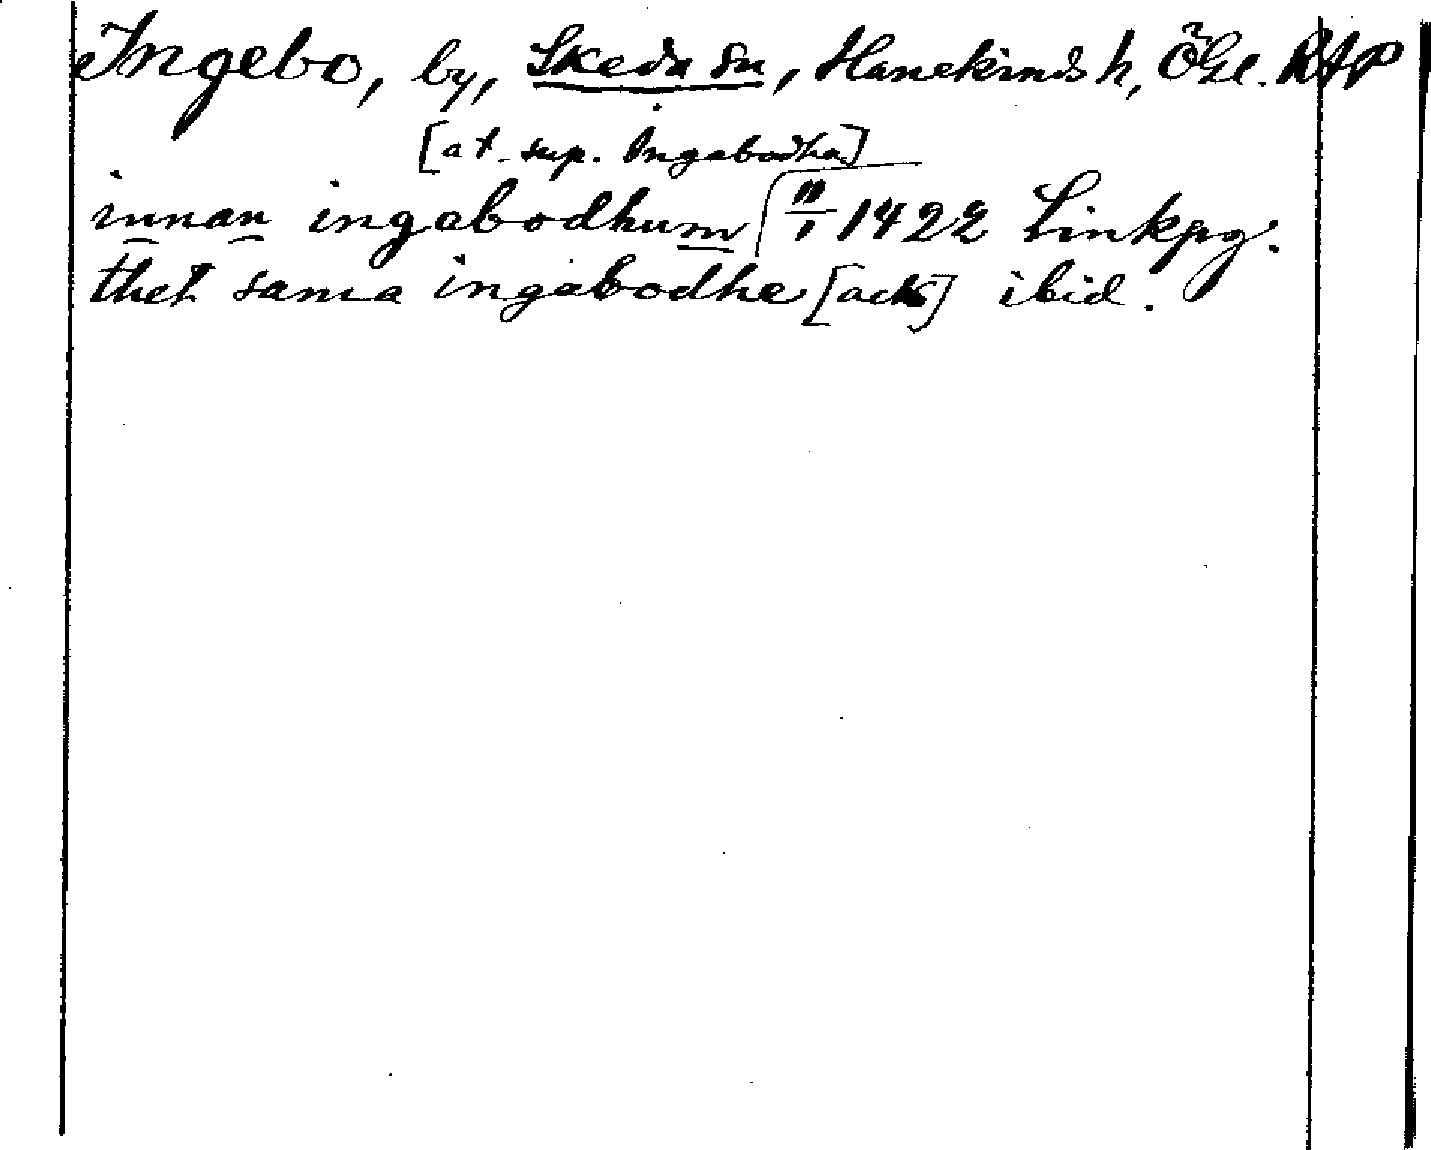 Ingebo, by, Skeda sn, Hanekinds h, ÖGl. RAP
[at. sup. Ingabodha]
innan ingabodhum 11/1 1422 Linkpg.
thet sama ingabodhe [ack] ibid.